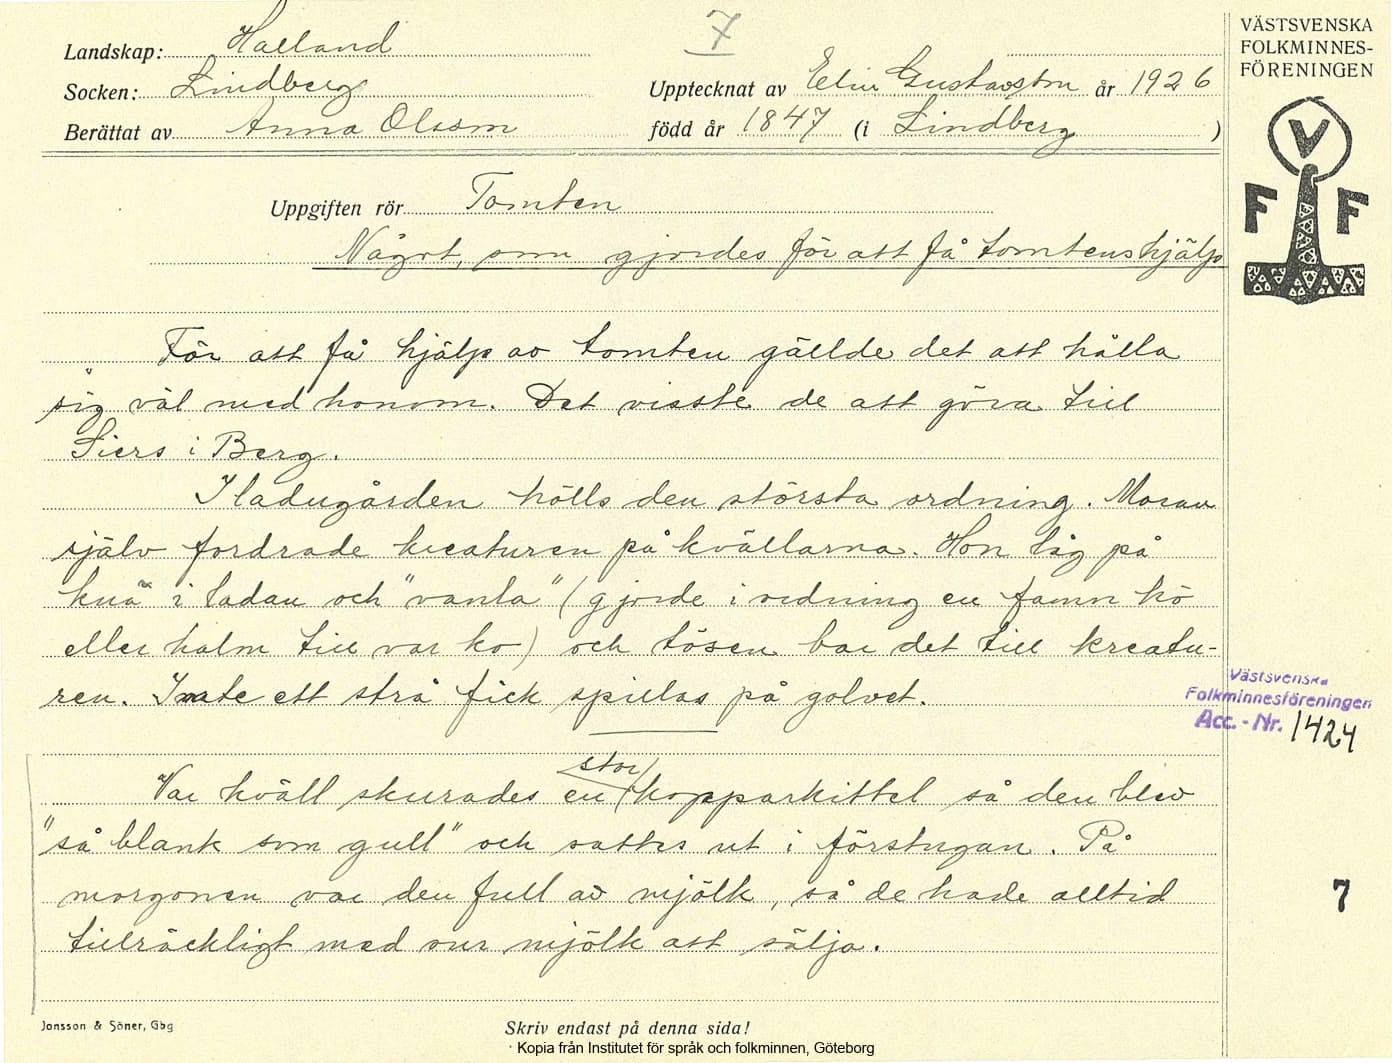 7
Landskap: Halland
Socken: Lindberg
Upptecknat av Elin Gustavsson år 1926
Berättat av Anna Olsson
född år 1847 (i Lindberg )
VÄSTSVENSKA
FOLKMINNES-
FÖRENINGEN
V
F F
Uppgiften rör Tomten
Något, som gjordes för att få tomtens hjälp
För att få hjälp av tomten gällde det att hålla
sig väl med honom. Det visste de att göra till
Siers i Berg.
I ladugården hölls den största ordning. Moran
själv fordrade kreaturen på kvällarna. Hon låg på
knä i ladan och "vanla" (gjorde i ordning en famn hö
eller halm till var ko) och tösen bar det till kreatu-
ren. Inte ett strå fick spillas på golvet.
Västsvenska
Folkminnesföreningen
Acc. - Nr. 1424
Var kväll skurades en stor kopparkittel så den blev
"så blank som gull" och sattes ut i förstugan. På
morgonen var den full av mjölk, så de hade alltid
tillräckligt med sur mjölk att sälja.
7
Jonsson & Söner, Gbg
Skriv endast på denna sida!
Kopia från Institutet för språk och folkminnen, Göteborg